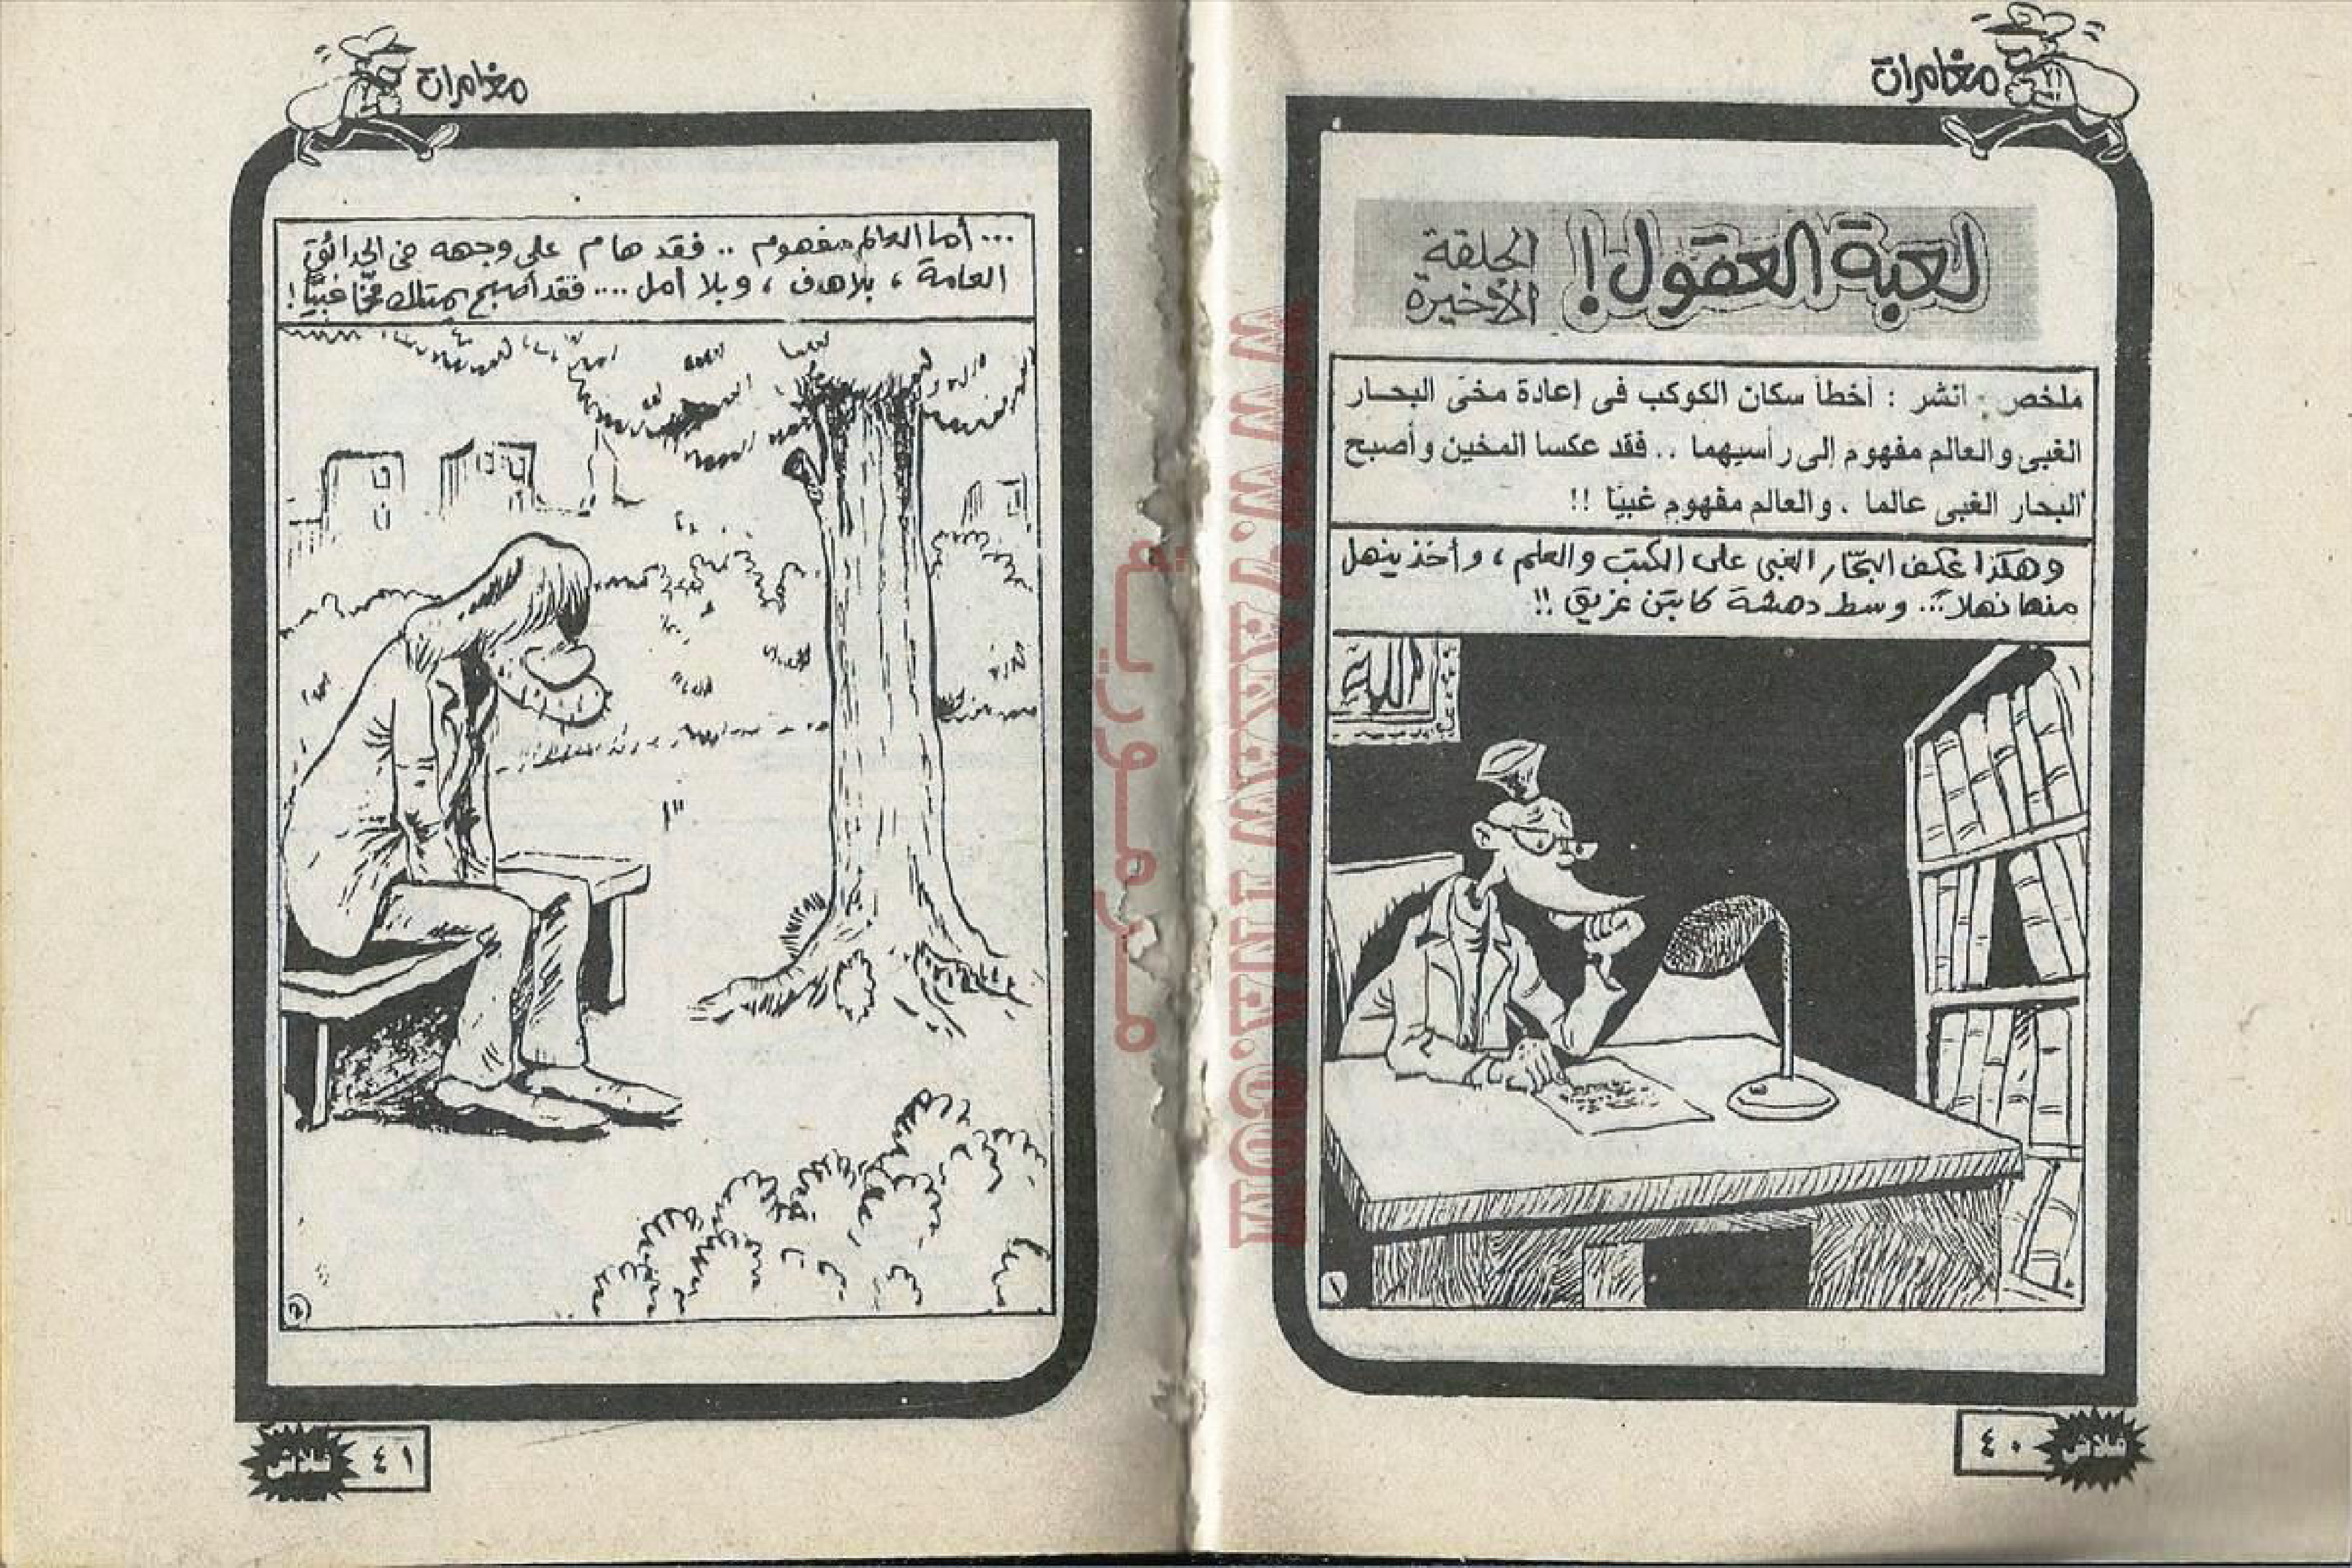 مغامرات
لعبة العقول!
الحلقة
الأخيرة
ملخص انشر : أخطأ سكان الكوكب فى إعادة مخى البحار
الغبى والعالم مفهوم إلى رأسيهما .. فقد عكسا المخين وأصبح
البحار الغبى عالما ، والعالم مفهوم غبيًا !!
وهكذا عكف البحّار الغبى على الكتب والعلم ، وأخذ ينهل
منها نهلاً... وسط دهشة كابتن عزيق !!
الله
١
٤٠
فلاش
مغامرات
... أما العالم مفهوم .. فقد هام على وجهه فى الحدائق
العامة ، بلا هدف ، وبلا أمل .... فقد أصبح يمتلك مخًّا غبيًّا !
٢
٤١
فلاش
مرمورية
WWW.ARABCARTOON.COM